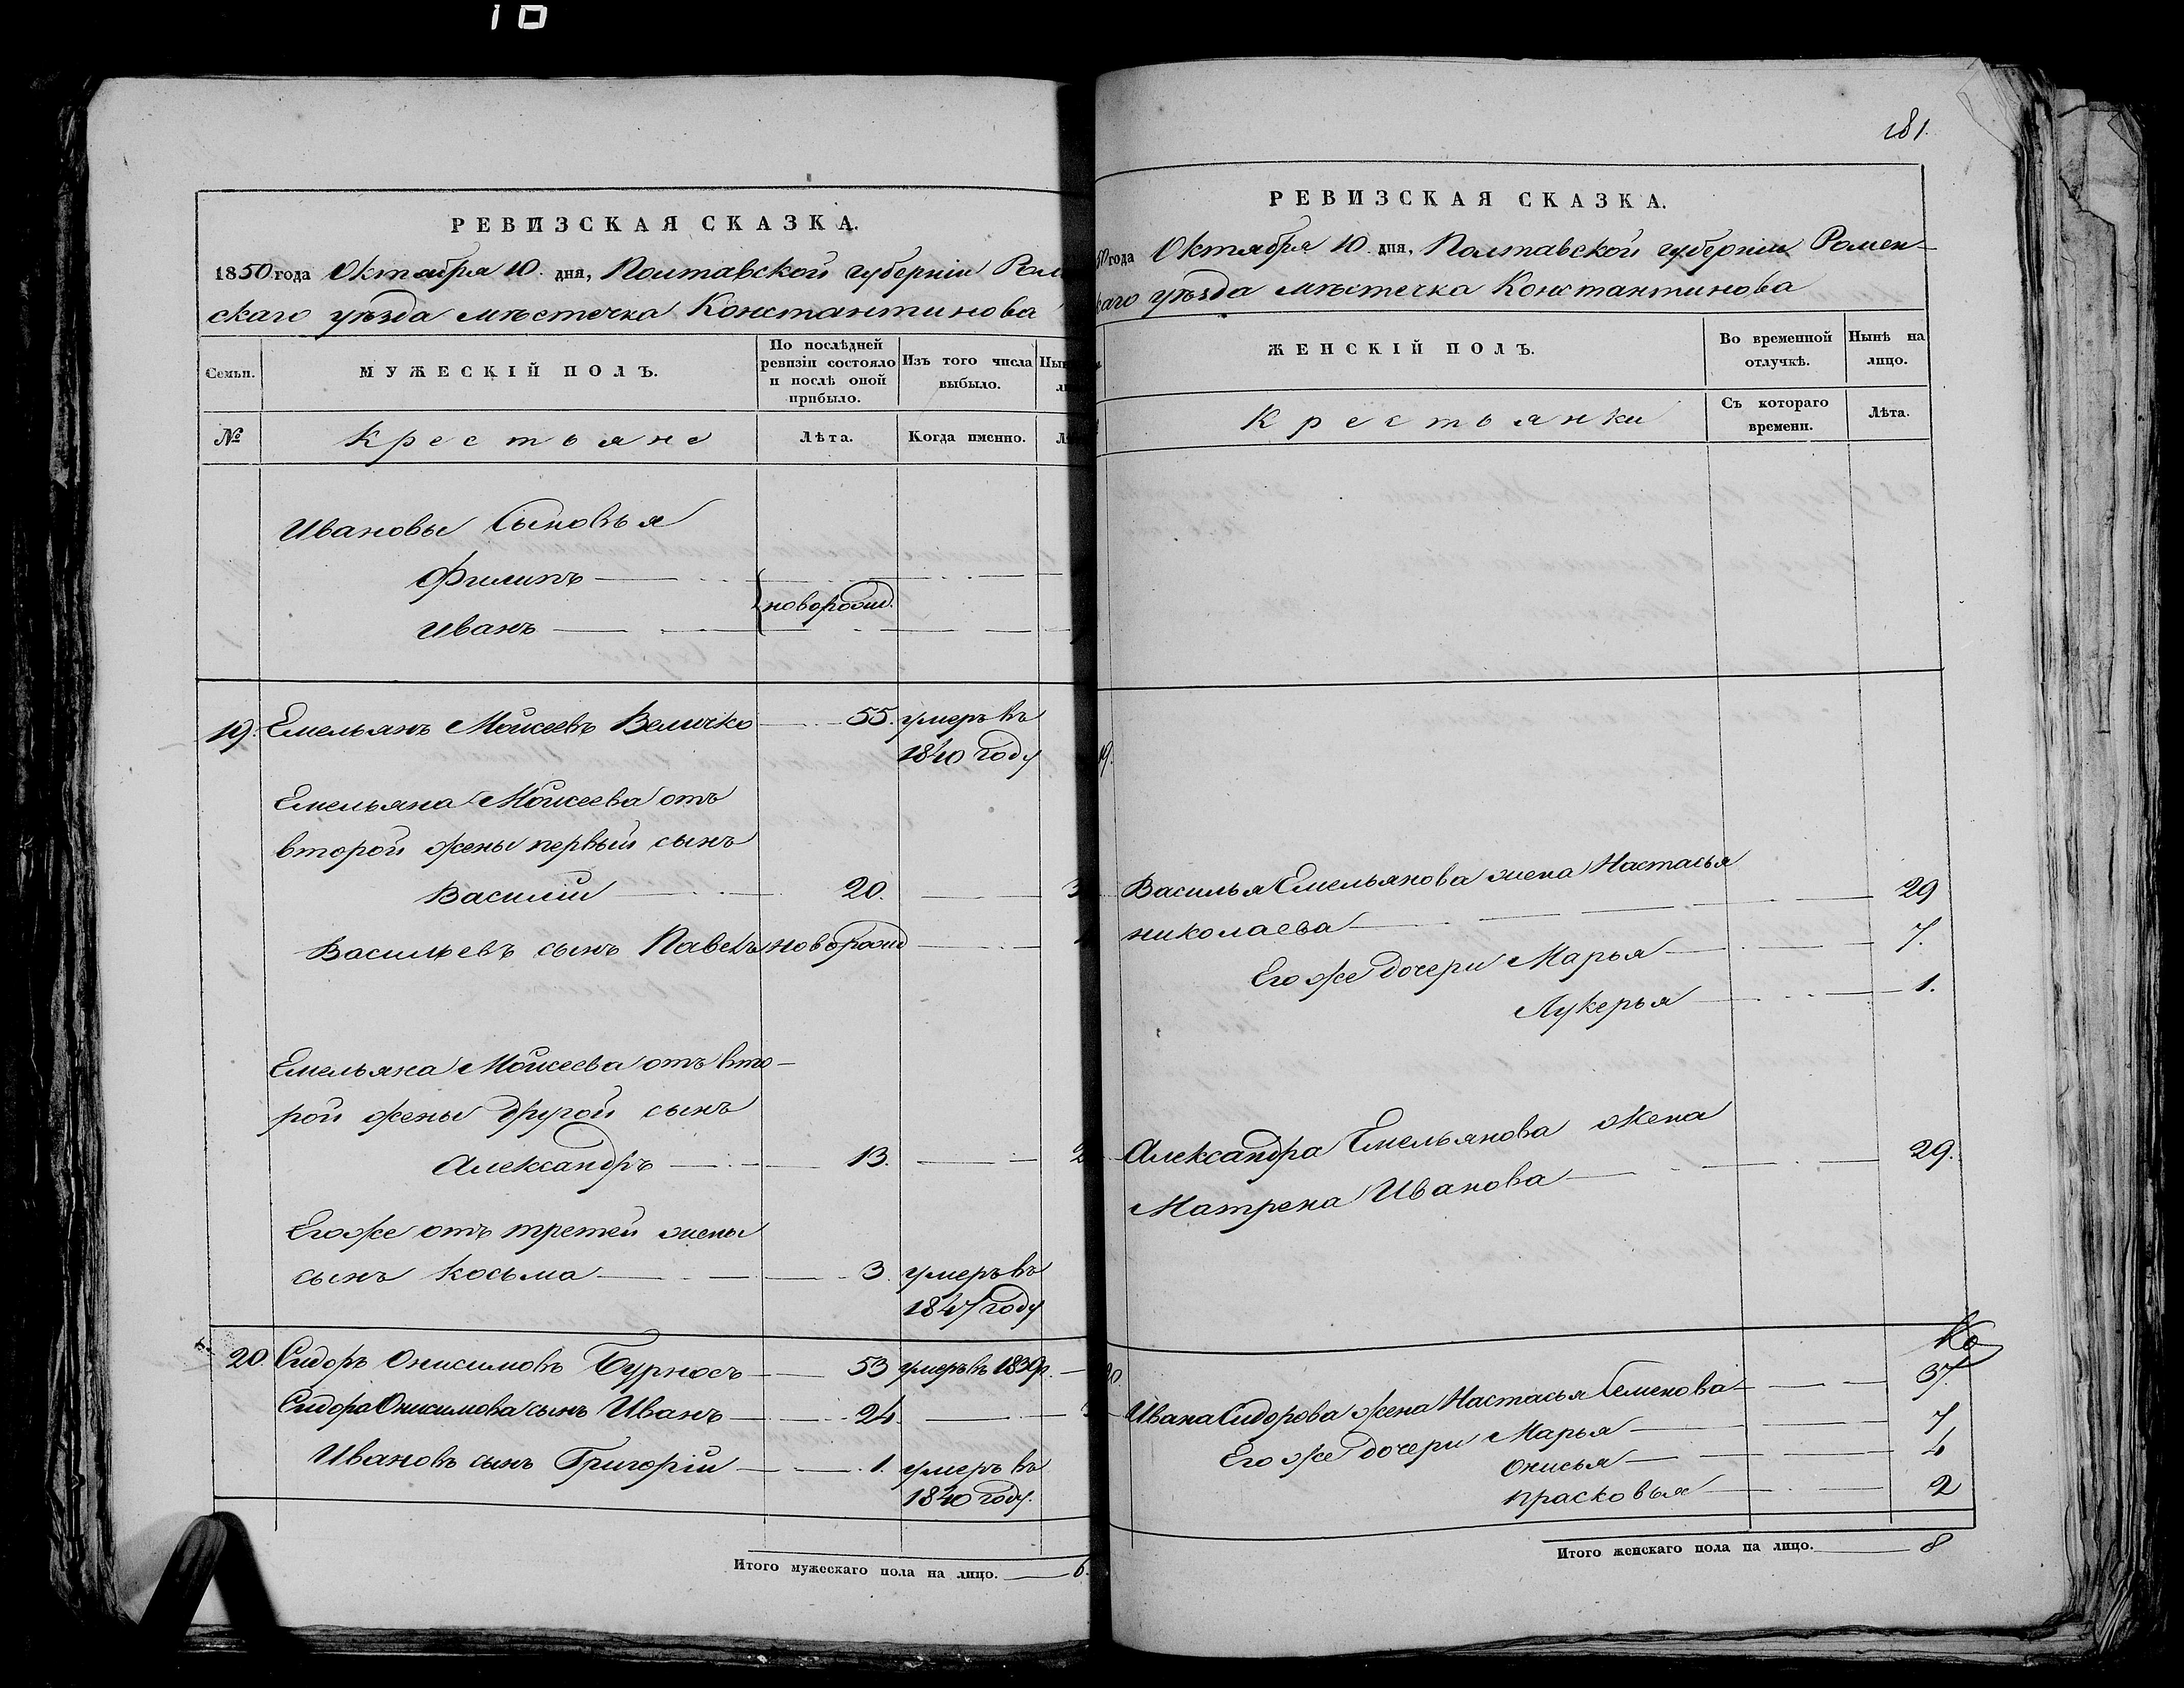 10
РЕВИЗСКАЯ СКАЗКА.
1850 года Октября 10. дня, Полтавской губерніи Ром
скаго уѣзда мѣстечка Константинова
Семьи.
МУЖЕСКІЙ ПОЛЪ.
По послѣдней ревизіи состояло и послѣ оной прибыло.
Изъ того числа выбыло.
№
Крестьяне
Лѣта.
Когда именно.
Ивановы Сыновья
Филипъ
новорожд.
Иванъ
19. Емельянъ Моисеевъ Величко 55. умеръ въ
1840 году
Емельяна Моисеева отъ
второй жены первый сынъ
Василій 20.
Васильевъ сынъ Павелъ новорожд
Емельяна Моисеева отъ вто-
рой жены другой сынъ
Александръ 13.
Его же отъ третей жены
сынъ Косьма 3. умеръ въ
1847 году
20. Сидоръ Онисимовъ Бурносъ 53 умеръ въ 1839 г.
Сидора Онисимова сынъ Иванъ 24.
Ивановъ сынъ Григорій 1. умеръ въ
1840 году.
Итого мужескаго пола на лицо. 6.
181.
РЕВИЗСКАЯ СКАЗКА.
50 года Октября 10. дня, Полтавской губерніи Ромен-
каго уѣзда мѣстечка Константинова
ЖЕНСКІЙ ПОЛЪ.
Во временной отлучкѣ.
Нынѣ на лицо.
Крестьянки
Съ котораго времени.
Лѣта.
19.
Василья Емельянова жена Настасья
николаева 29
Его же дочери Марья 7.
Лукерья 1.
Александра Емельянова жена
Матрена Иванова 29.
20.
Ивана Сидорова жена Настасья Семенова 37.
Его же дочери Марья 7
Онисья 4
Прасковья 2
Итого женскаго пола на лицо. 8